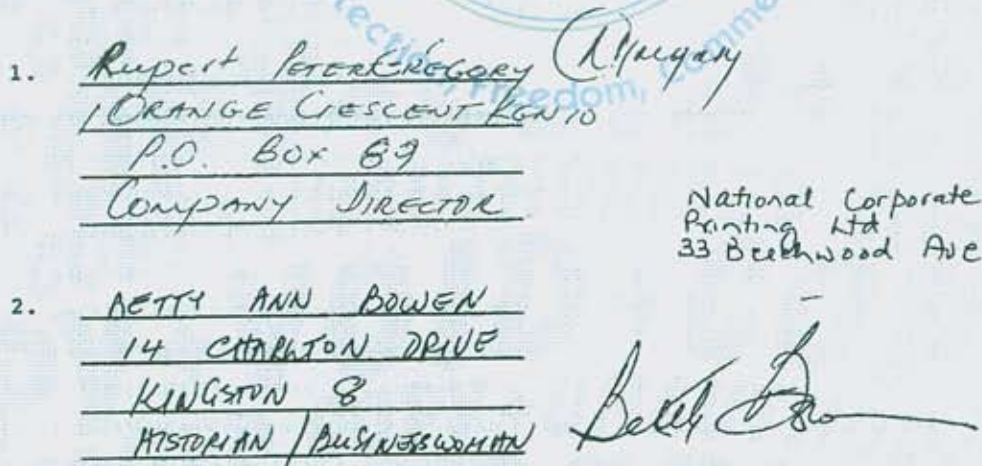 ection, Freedom, Comme
1. Rupert PETER GREGORY
1 ORANGE CRESCENT KGN 10
P.O. Box 89
COMPANY DIRECTOR
National Corporate
Printing Ltd
33 Beechwood Ave
2. BETTY ANN BOWEN
14 CHARLTON DRIVE
KINGSTON 8
HISTORIAN / BUSINESSWOMAN